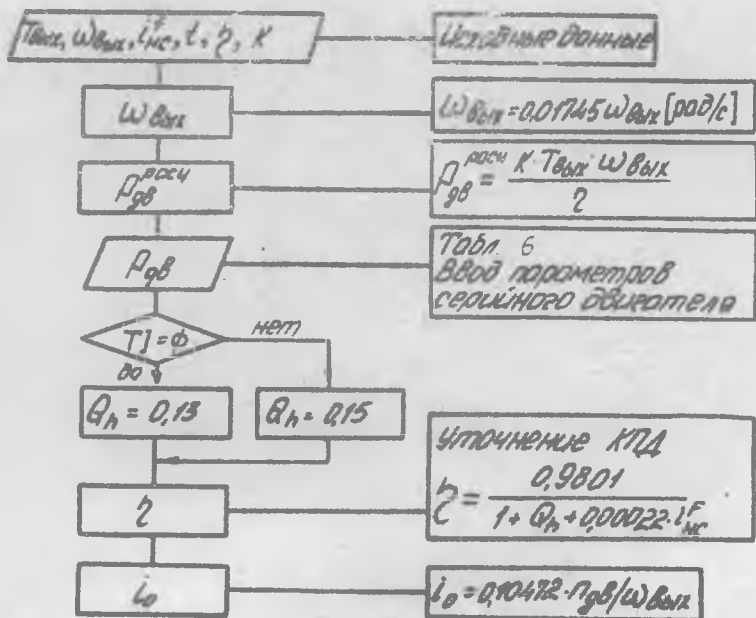 Tвых, ωвых, i нс F, t, η, K
Исходные данные
ωвых
ωвых = 0,01745 ωвых [рад/с]
Pдв расч
Pдв расч = K · Tвых · ωвых / η
Pдв
Табл. 6
Ввод параметров
серийного двигателя
TJ = Ф
нет
да
Qh = 0,13
Qh = 0,15
Уточнение КПД
η = 0,9801 / 1 + Qh + 0,00022 · i нс F
η
i₀
i₀ = 0,10472 · nдв / ωвых